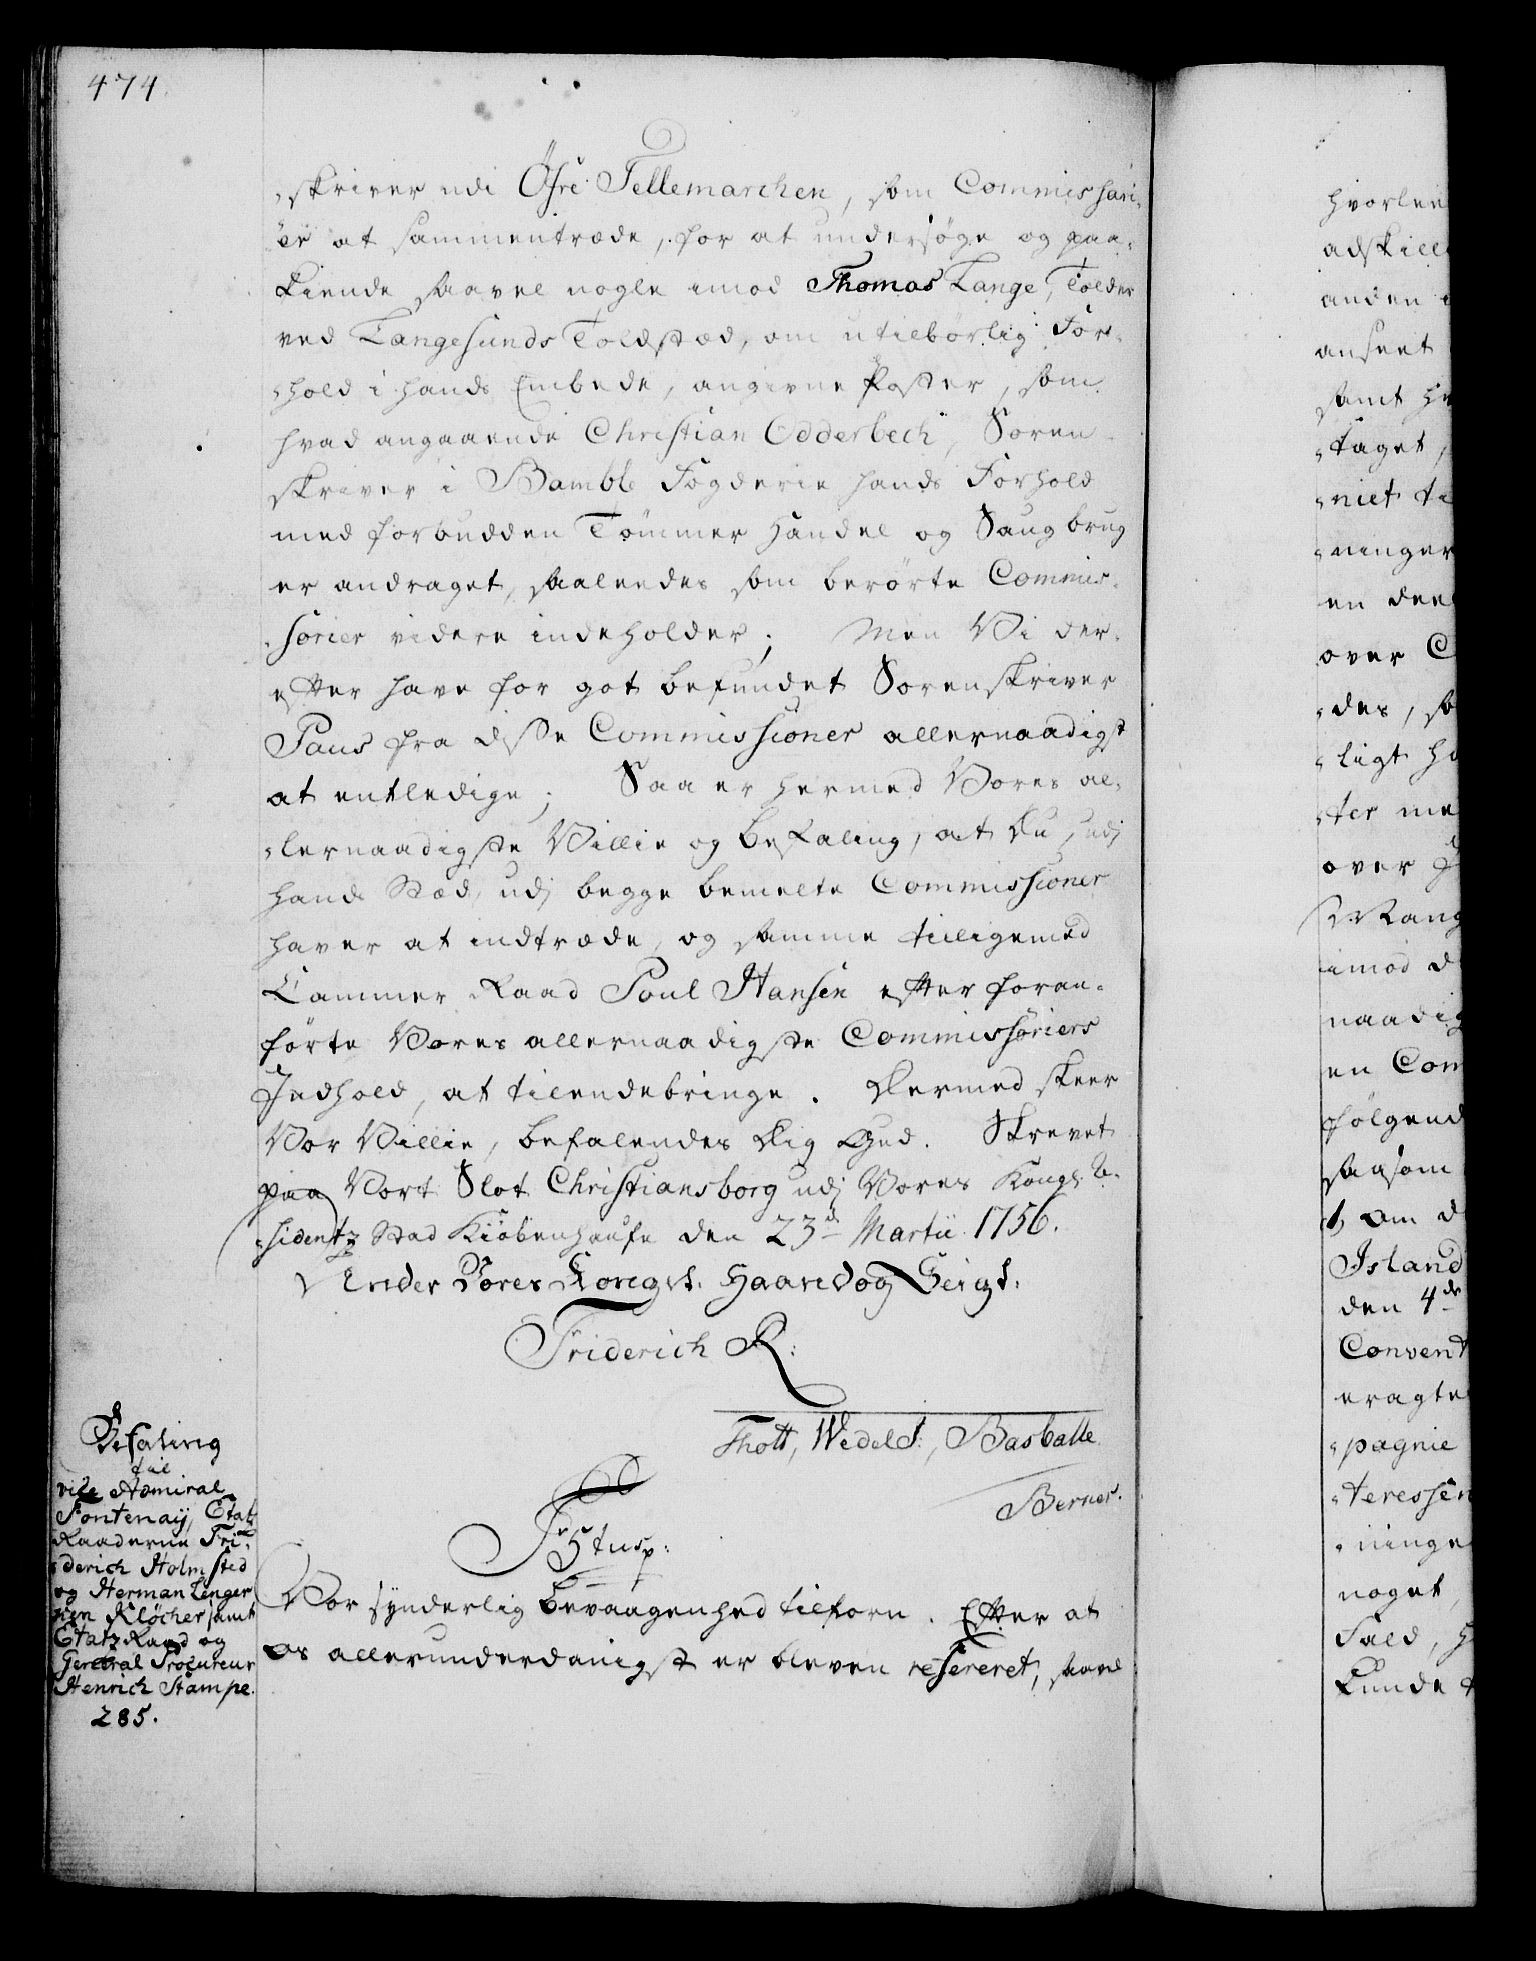 474.
skriver udi Öfre Tellemarchen, som Commissari-
er at sammentræde, for at undersøge og paa-
kiende saavel nogle imod Thomas Lange, Tolder
ved Langesunds Toldstæd, om utilbörlig For-
hold i hands Embede, angivne Poster, som
hvad angaaende Christian Odderbech, Soren-
skriver i Bamble Fogderie hands Forhold
med forbudden Tømmer Handel og Saugbrug
er andraget, saaleedes som berørte Commis-
sorier videre indeholder; Men Vi der-
efter have for got befundet Sorenskriver
Paus fra disse Commissioner allernaadigst
at entledige; Saa er hermed Vores al-
lernaadigste Villie og Befaling, at Du, udj
hands Stæd, udj begge bemelte Commissioner
haver at indtræde, og samme tilligemed
Cammer Raad Poul Hansen efter foran-
förte Vores allernaadigste Commissoriers
Indhold, at tilendebringe. Dermed skeer
Vor Villie, befalendes Dig Gud. Skrevet
paa Vort Slot Christiansborg udj Vores Kongl: Re-
sidentz Stad Kiöbenhaufn den 23de Martii 1756.
Under Vores Kongel: Haand og Seigl:
Friderich R:
Thott, Wedel S:, Basballe
Berner.
Befaling
til
vice Admiral
Fontenaij, Etatz
Raaderne Fri-
derich Holmsted
og Herman Lenger
ken Klöcher samt
Etatz Raad og
General Procureur
Henrich Stampe.
285.
F 5tusp:
Vor synderlig Bevaagenhed tilforn. Efter at
os allerunderdanigst er bleven refereret, saavel
hvorlee
adskille
anden
anseet
samt
taget,
niet
ninger
en dee
over C
des, so
ligt
ter me
over
imod d
naadig
en Com
følgend
saasom
t, om d
Island
den 4de
Convent
eragte
pagnie
teressen
ninge
noget,
Fald, H
kunde